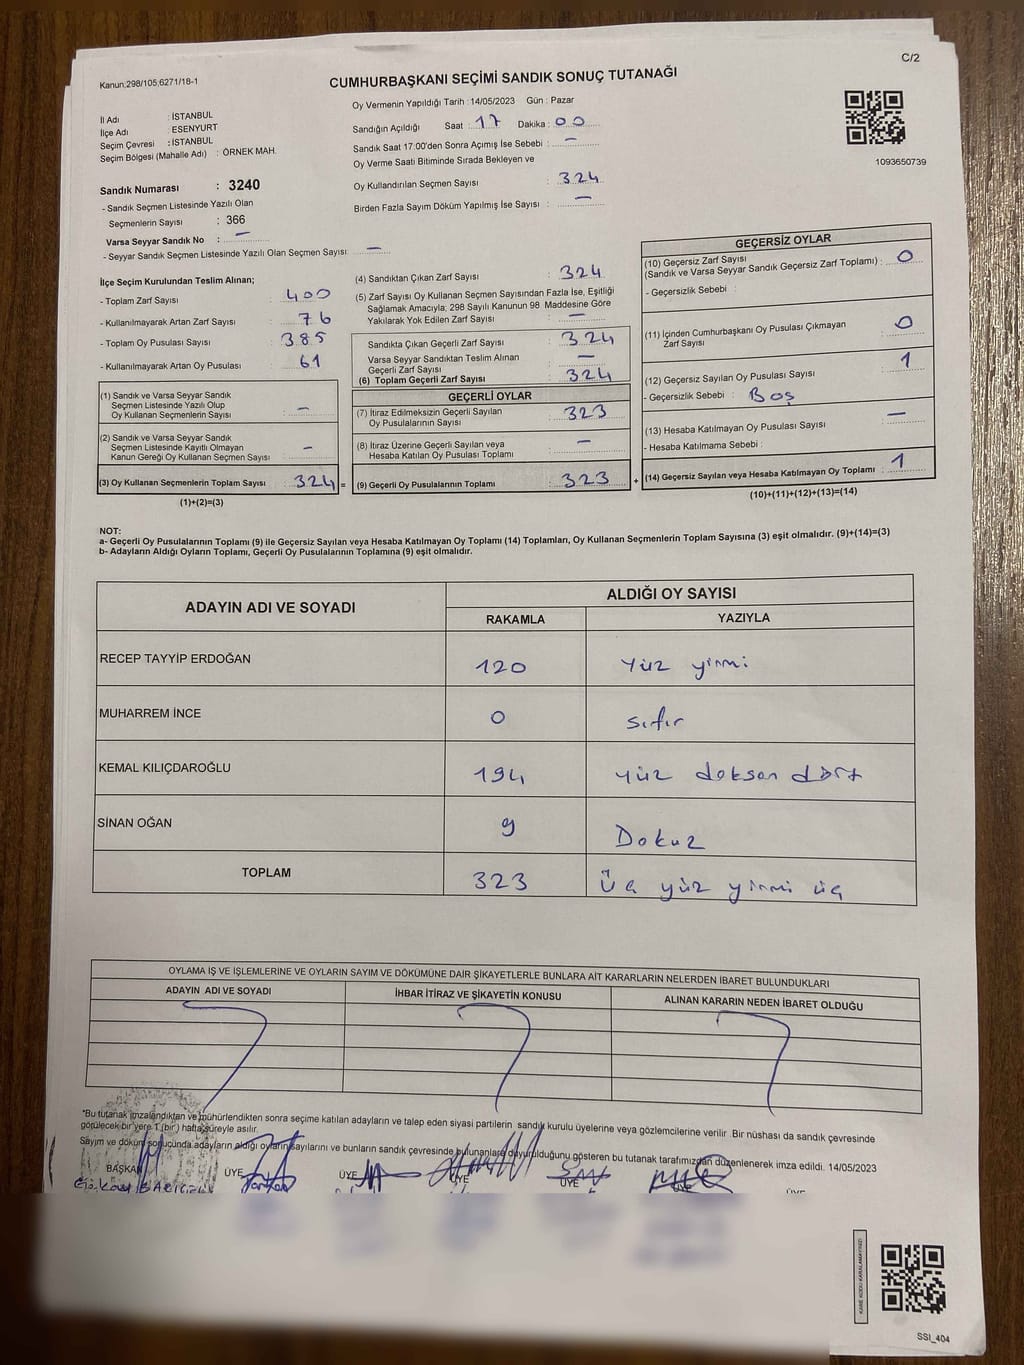 C/2
Kanun:298/105;6271/18-1
CUMHURBAŞKANI SEÇİMİ SANDIK SONUÇ TUTANAĞI
İl Adı : İSTANBUL
İlçe Adı : ESENYURT
Seçim Çevresi : İSTANBUL
Seçim Bölgesi (Mahalle Adı) : ÖRNEK MAH.
Oy Vermenin Yapıldığı Tarih :14/05/2023 Gün : Pazar
Sandığın Açıldığı Saat : 17 Dakika : 00
Sandık Saat 17:00'den Sonra Açımış İse Sebebi : —
Oy Verme Saati Bitiminde Sırada Bekleyen ve
Oy Kullandırılan Seçmen Sayısı : 324
Birden Fazla Sayım Döküm Yapılmış İse Sayısı : —
1093650739
Sandık Numarası : 3240
- Sandık Seçmen Listesinde Yazılı Olan
Seçmenlerin Sayısı : 366
Varsa Seyyar Sandık No : —
- Seyyar Sandık Seçmen Listesinde Yazılı Olan Seçmen Sayısı : —
İlçe Seçim Kurulundan Teslim Alınan;
- Toplam Zarf Sayısı : 400
- Kullanılmayarak Artan Zarf Sayısı : 76
- Toplam Oy Pusulası Sayısı : 385
- Kullanılmayarak Artan Oy Pusulası : 61
(1) Sandık ve Varsa Seyyar Sandık
Seçmen Listesinde Yazılı Olup
Oy Kullanan Seçmenlerin Sayısı : —
(2) Sandık ve Varsa Seyyar Sandık
Seçmen Listesinde Kayıtlı Olmayan
Kanun Gereği Oy Kullanan Seçmen Sayısı : —
(3) Oy Kullanan Seçmenlerin Toplam Sayısı : 324 =
(1)+(2)=(3)
(4) Sandıktan Çıkan Zarf Sayısı : 324
(5) Zarf Sayısı Oy Kullanan Seçmen Sayısından Fazla İse, Eşitliği
Sağlamak Amacıyla; 298 Sayılı Kanunun 98. Maddesine Göre
Yakılarak Yok Edilen Zarf Sayısı : —
Sandıkta Çıkan Geçerli Zarf Sayısı : 324
Varsa Seyyar Sandıktan Teslim Alınan
Geçerli Zarf Sayısı : —
(6) Toplam Geçerli Zarf Sayısı : 324
GEÇERLİ OYLAR
(7) İtiraz Edilmeksizin Geçerli Sayılan
Oy Pusulalarının Sayısı : 323
(8) İtiraz Üzerine Geçerli Sayılan veya
Hesaba Katılan Oy Pusulası Toplamı : —
(9) Geçerli Oy Pusulalarının Toplamı : 323 +
GEÇERSİZ OYLAR
(10) Geçersiz Zarf Sayısı
(Sandık ve Varsa Seyyar Sandık Geçersiz Zarf Toplamı) : 0
- Geçersizlik Sebebi :
(11) İçinden Cumhurbaşkanı Oy Pusulası Çıkmayan
Zarf Sayısı : 0
(12) Geçersiz Sayılan Oy Pusulası Sayısı : 1
- Geçersizlik Sebebi : Boş
(13) Hesaba Katılmayan Oy Pusulası Sayısı : —
- Hesaba Katılmama Sebebi :
(14) Geçersiz Sayılan veya Hesaba Katılmayan Oy Toplamı : 1
(10)+(11)+(12)+(13)=(14)
NOT:
a- Geçerli Oy Pusulalarının Toplamı (9) ile Geçersiz Sayılan veya Hesaba Katılmayan Oy Toplamı (14) Toplamları, Oy Kullanan Seçmenlerin Toplam Sayısına (3) eşit olmalıdır. (9)+(14)=(3)
b- Adayların Aldığı Oyların Toplamı, Geçerli Oy Pusulalarının Toplamına (9) eşit olmalıdır.
ADAYIN ADI VE SOYADI
ALDIĞI OY SAYISI
RAKAMLA YAZIYLA
RECEP TAYYİP ERDOĞAN 120 yüz yirmi
MUHARREM İNCE 0 sıfır
KEMAL KILIÇDAROĞLU 194 yüz doksan dört
SİNAN OĞAN 9 Dokuz
TOPLAM 323 üç yüz yirmi üç
OYLAMA İŞ VE İŞLEMLERİNE VE OYLARIN SAYIM VE DÖKÜMÜNE DAİR ŞİKAYETLERLE BUNLARA AİT KARARLARIN NELERDEN İBARET BULUNDUKLARI
ADAYIN ADI VE SOYADI İHBAR İTİRAZ VE ŞİKAYETİN KONUSU ALINAN KARARIN NEDEN İBARET OLDUĞU
"Bu tutanak imzalandıktan ve mühürlendikten sonra seçime katılan adayların ve talep eden siyasi partilerin sandık kurulu üyelerine veya gözlemcilerine verilir. Bir nüshası da sandık çevresinde
görülecek bir yere 1 (bir) hafta süreyle asılır.
Sayım ve döküm sonucunda adayların aldığı oyların sayılarını ve bunların sandık çevresinde bulunanlara duyurulduğunu gösteren bu tutanak tarafımızdan düzenlenerek imza edildi. 14/05/2023
BAŞKAN ÜYE ÜYE ÜYE ÜYE ÜYE ÜYE
SSI_404